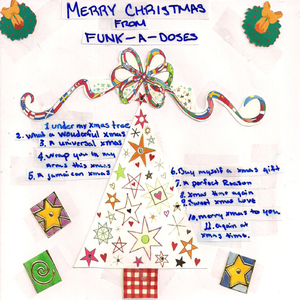 MERRY CHRISTMAS
FROM
FUNK-A-DOSES
1 under my xmas tree
2. what a wonderful xmas
3. A universal xmas
4. wrap you in my
arms this xmas
5. A jamaican xmas
6. Buy myself a xmas gift
7. A perfect Reason
8. xmas time again
9. Sweet xmas Love
10. merry xmas to you
11. again at
xmas time.